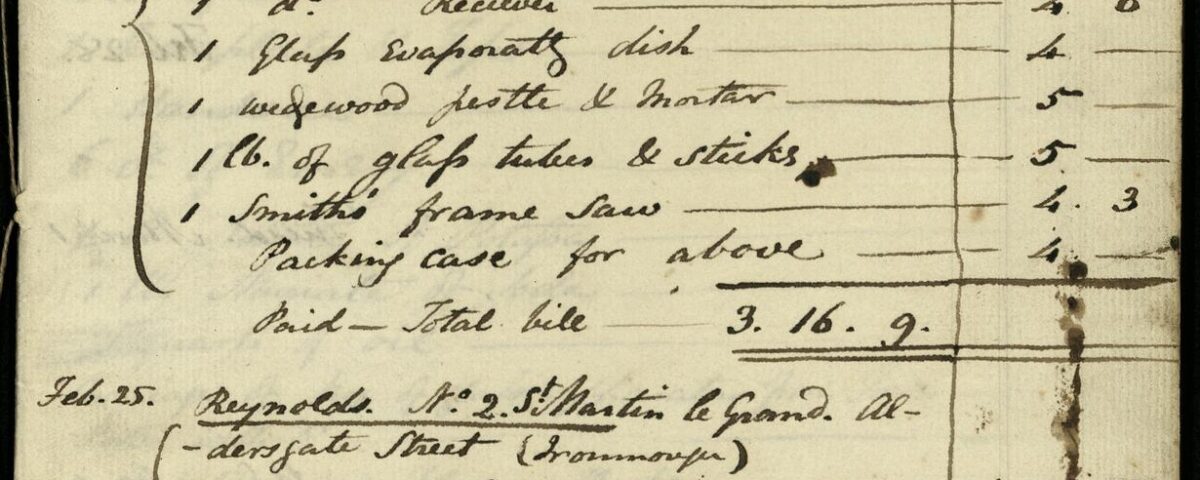 1 do. Reciever — 4 6
1 Glaſs Evaporatg dish — 4 —
1 wedgewood pestle & Mortar — 5 —
1 lb. of glaſs tubes & sticks — 5 —
1 Smiths' frame Saw — 4. 3
Packing case for above — 4 —
Paid — Total bill — 3. 16. 9.
Feb. 25. Reynolds. No. 2. St. Martin le Grand. Al-
-dersgate Street (Ironmonger)